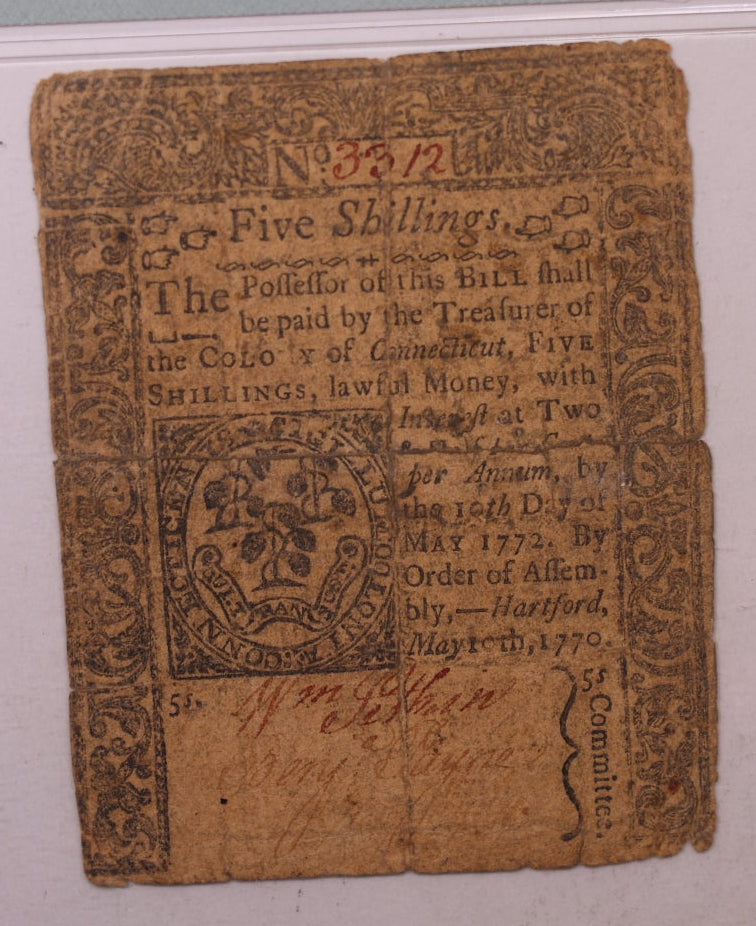 No. 3312
Five Shillings.
The Poſſeſſor of this BILL ſhall
be paid by the Treaſurer of
the COLO Y of Connecticut, FIVE
SHILLINGS, lawful Money, with
Intereſt at Two
per Annum, by
the 10th Day of
MAY 1772. By
Order of Aſſem-
bly,—Hartford,
May 10th, 1770.
5s.
5s
Committee.
Wm Pitkin